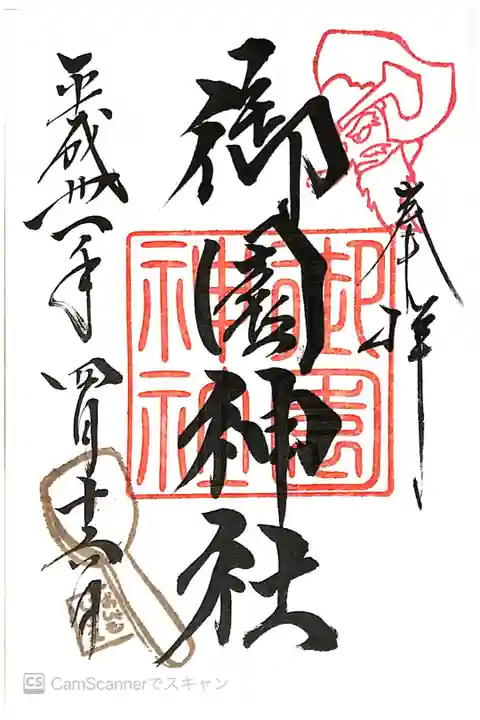 奉拝
御園神社
御園神社
平成卅一年四月十六日
CS CamScannerでスキャン